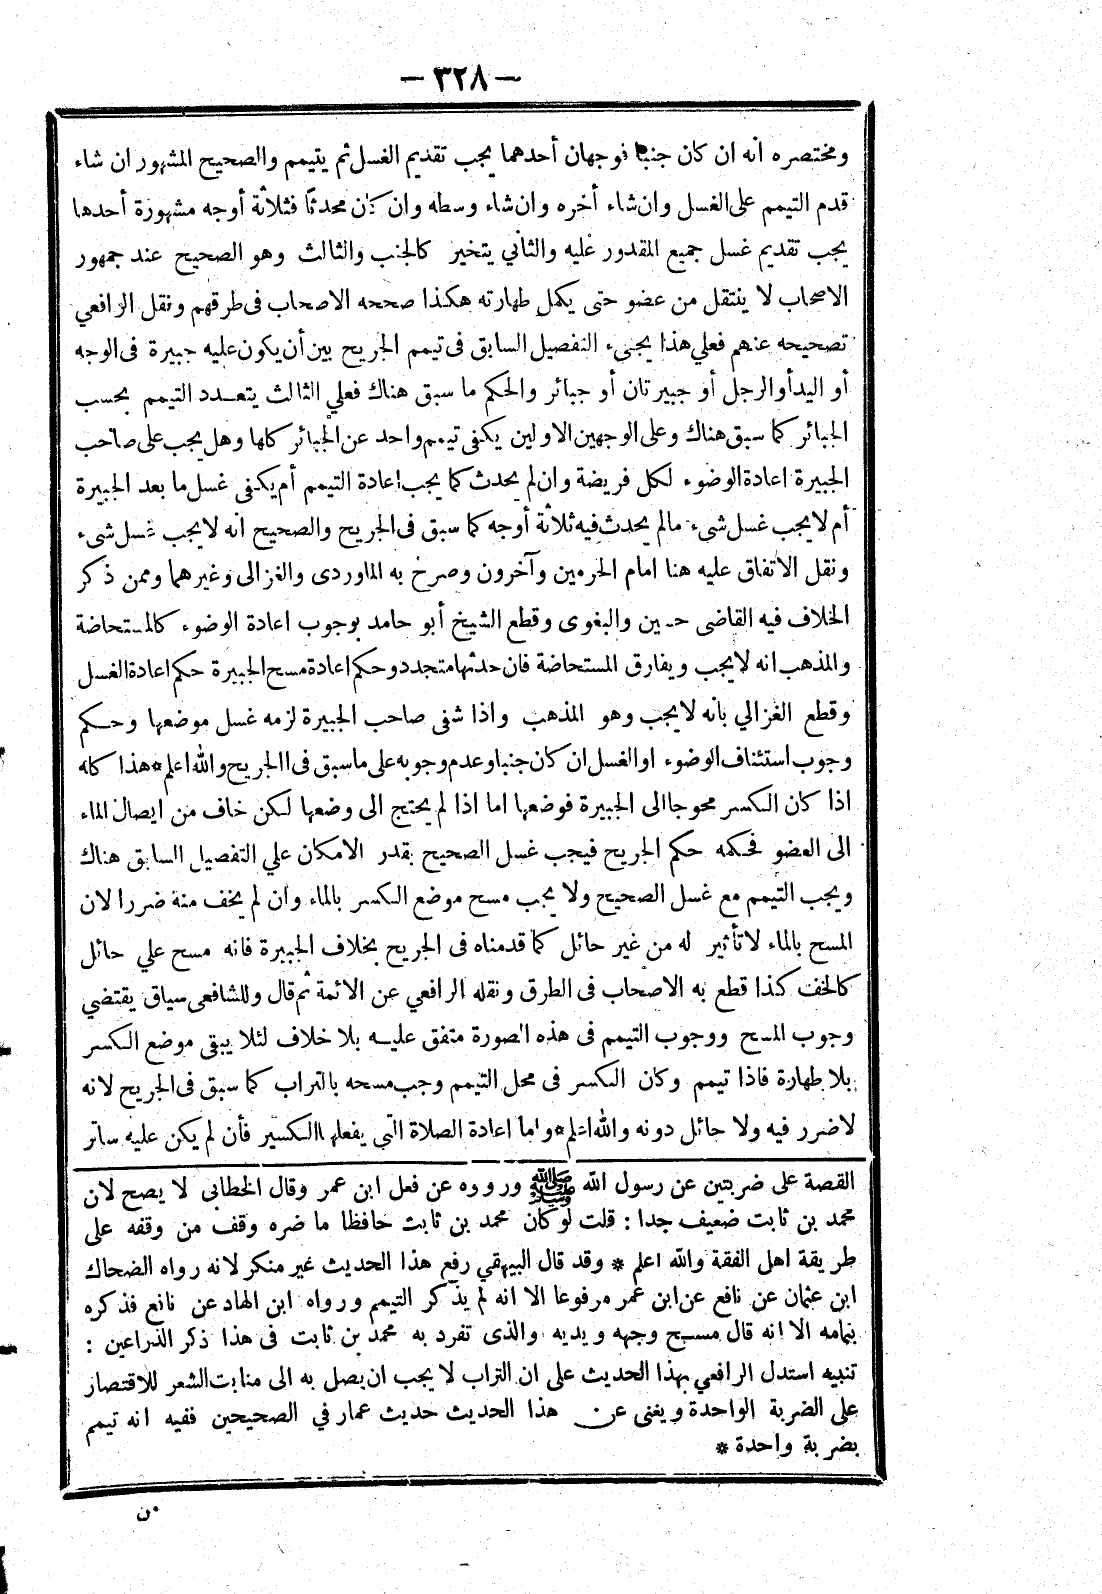 — ٣٢٨ —
ومختصره انه ان كان جنبا فوجهان أحدهما يجب تقديم الغسل ثم يتيمم والصحيح المشهور ان شاء
قدم التيمم على الغسل وان شاء أخره وان شاء وسطه وان كان محدثا فثلاثة أوجه مشهورة أحدها
يجب تقديم غسل جميع المقدور عليه والثاني يتخير كالجنب والثالث وهو الصحيح عند جمهور
الاصحاب لا ينتقل من عضو حتى يكمل طهارته هكذا صححه الاصحاب فى طرقهم ونقل الرافعي
تصحيحه عنهم فعلي هذا يجىء التفصيل السابق فى تيمم الجريح بين أن يكون عليه جبيرة فى الوجه
أو اليد أو الرجل أو جبيرتان أو جبائر والحكم ما سبق هناك فعلي الثالث يتعدد التيمم بحسب
الجبائر كما سبق هناك وعلى الوجهين الاولين يكفى تيمم واحد عن الجبائر كلها وهل يجب على صاحب
الجبيرة اعادة الوضوء لكل فريضة وان لم يحدث كما يجب اعادة التيمم أم يكفى غسل ما بعد الجبيرة
أم لا يجب غسل شىء مالم يحدث فيه ثلاثة أوجه كما سبق فى الجريح والصحيح انه لا يجب غسل شىء
ونقل الاتفاق عليه هنا امام الحرمين وآخرون وصرح به الماوردى والغزالى وغيرهما وممن ذكر
الخلاف فيه القاضى حسين والبغوى وقطع الشيخ أبو حامد بوجوب اعادة الوضوء كالمستحاضة
والمذهب انه لا يجب ويفارق المستحاضة فان حدثها متجدد وحكم اعادة مسح الجبيرة حكم اعادة الغسل
وقطع الغزالي بأنه لا يجب وهو المذهب واذا شفى صاحب الجبيرة لزمه غسل موضعها وحكم
وجوب استئناف الوضوء او الغسل ان كان جنبا وعدم وجوبه على ما سبق فى االجريح والله اعلم * هذا كله
اذا كان الكسر محوجا الى الجبيرة فوضعها اما اذا لم يحتج الى وضعها لكن خاف من ايصال الماء
الى العضو فحكمه حكم الجريح فيجب غسل الصحيح بقدر الامكان علي التفصيل السابق هناك
ويجب التيمم مع غسل الصحيح ولا يجب مسح موضع الكسر بالماء وان لم يخف منه ضررا لان
المسح بالماء لا تأثير له من غير حائل كما قدمناه فى الجريح بخلاف الجبيرة فانه مسح علي حائل
كالخف كذا قطع به الاصحاب فى الطرق ونقله الرافعي عن الائمة ثم قال وللشافعى سياق يقتضي
وجوب المسح ووجوب التيمم فى هذه الصورة متفق عليه بلا خلاف لئلا يبقى موضع الكسر
بلا طهارة فاذا تيمم وكان الكسر فى محل التيمم وجب مسحه بالتراب كما سبق فى الجريح لانه
لاضرر فيه ولا حائل دونه والله اعلم * واما اعادة الصلاة التي يفعلها الكسير فأن لم يكن عليه ساتر
القصة على ضربتين عن رسول الله ﷺ ورووه عن فعل ابن عمر وقال الخطابي لا يصح لان
محمد بن ثابت ضعيف جدا : قلت لو كان محمد بن ثابت حافظا ما ضره وقف من وقفه على
طريقة اهل الفقة والله اعلم * وقد قال البيهقي رفع هذا الحديث غير منكر لانه رواه الضحاك
ابن عثمان عن نافع عن ابن عمر مرفوعا الا انه لم يذكر التيمم ورواه ابن الهاد عن نافع فذكره
بتمامه الا انه قال مسح وجهه ويديه والذى تفرد به محمد بن ثابت فى هذا ذكر الذراعين :
تنبيه استدل الرافعي بهذا الحديث على ان التراب لا يجب ان يصل به الى منابت الشعر للاقتصار
على الضربة الواحدة ويغنى عن هذا الحديث حديث عمار في الصحيحين ففيه انه تيمم
بضربة واحدة *